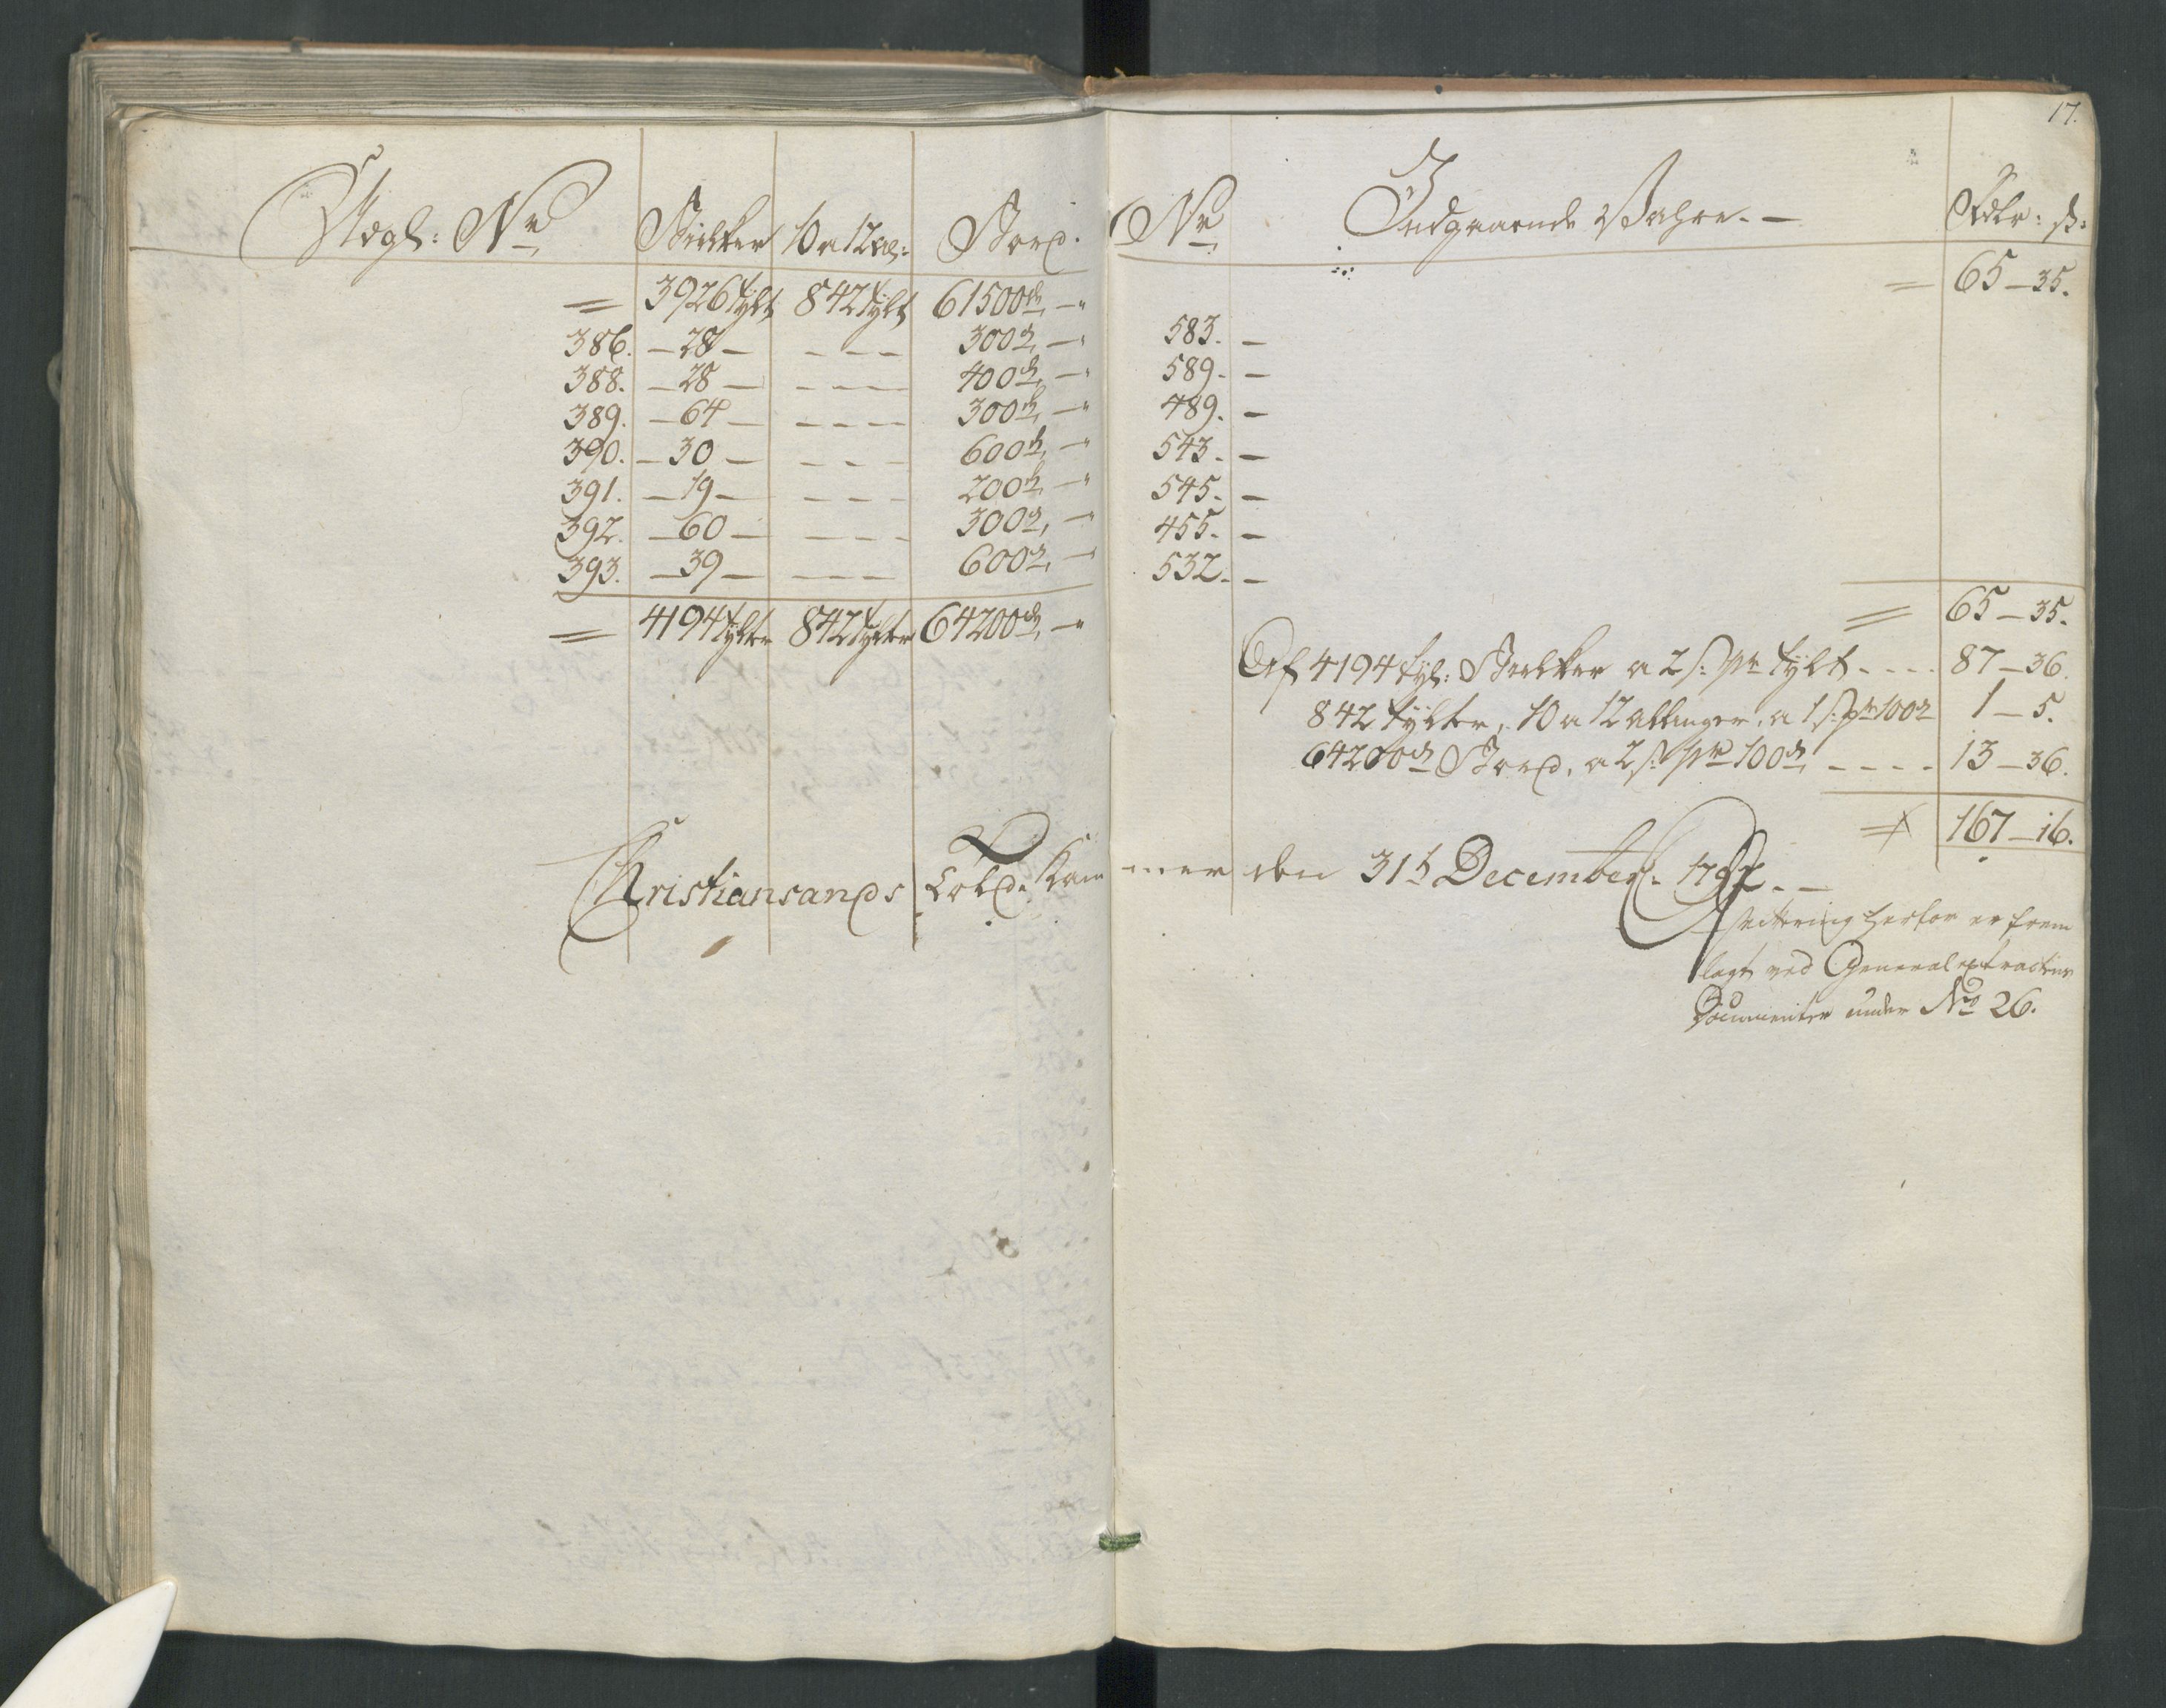 17.
Udgl: Nr Stikker 10 a 12 al: Stord. Nr Indgaaende Vahre. — Rdlr: ß:
= 3926 tylt 842 tylt 61500 tt — = 65 — 35.
386. — 28 — — — — 300 tt — 583. —
388. — 28 — — — — 400 tt — 589. —
389. — 64 — — — — 300 tt — 489. —
390. — 30 — — — — 600 tt — 543. —
391. — 19 — — — — 200 tt — 545. —
392. — 60 — — — — 300 tt — 455. —
393. — 39 — — — — 600 tt — 532. —
= 4194 tylter 842 tylter 64200 tt — = 65 — 35.
Af 4194 tyl: a 2 s: pr tylt - - - - 87 — 36.
842 tylter, 10 a 12 allinger, a 1 s: pr 100 1 — 5.
64200 tt a 2 s: pr 100 tt - - - - 13 — 36.
= 167 — 16.
Christiansands Told. Kammer den 31t December 179
herfor er frem
lagt ved General Extractens
Documenter under No 26.